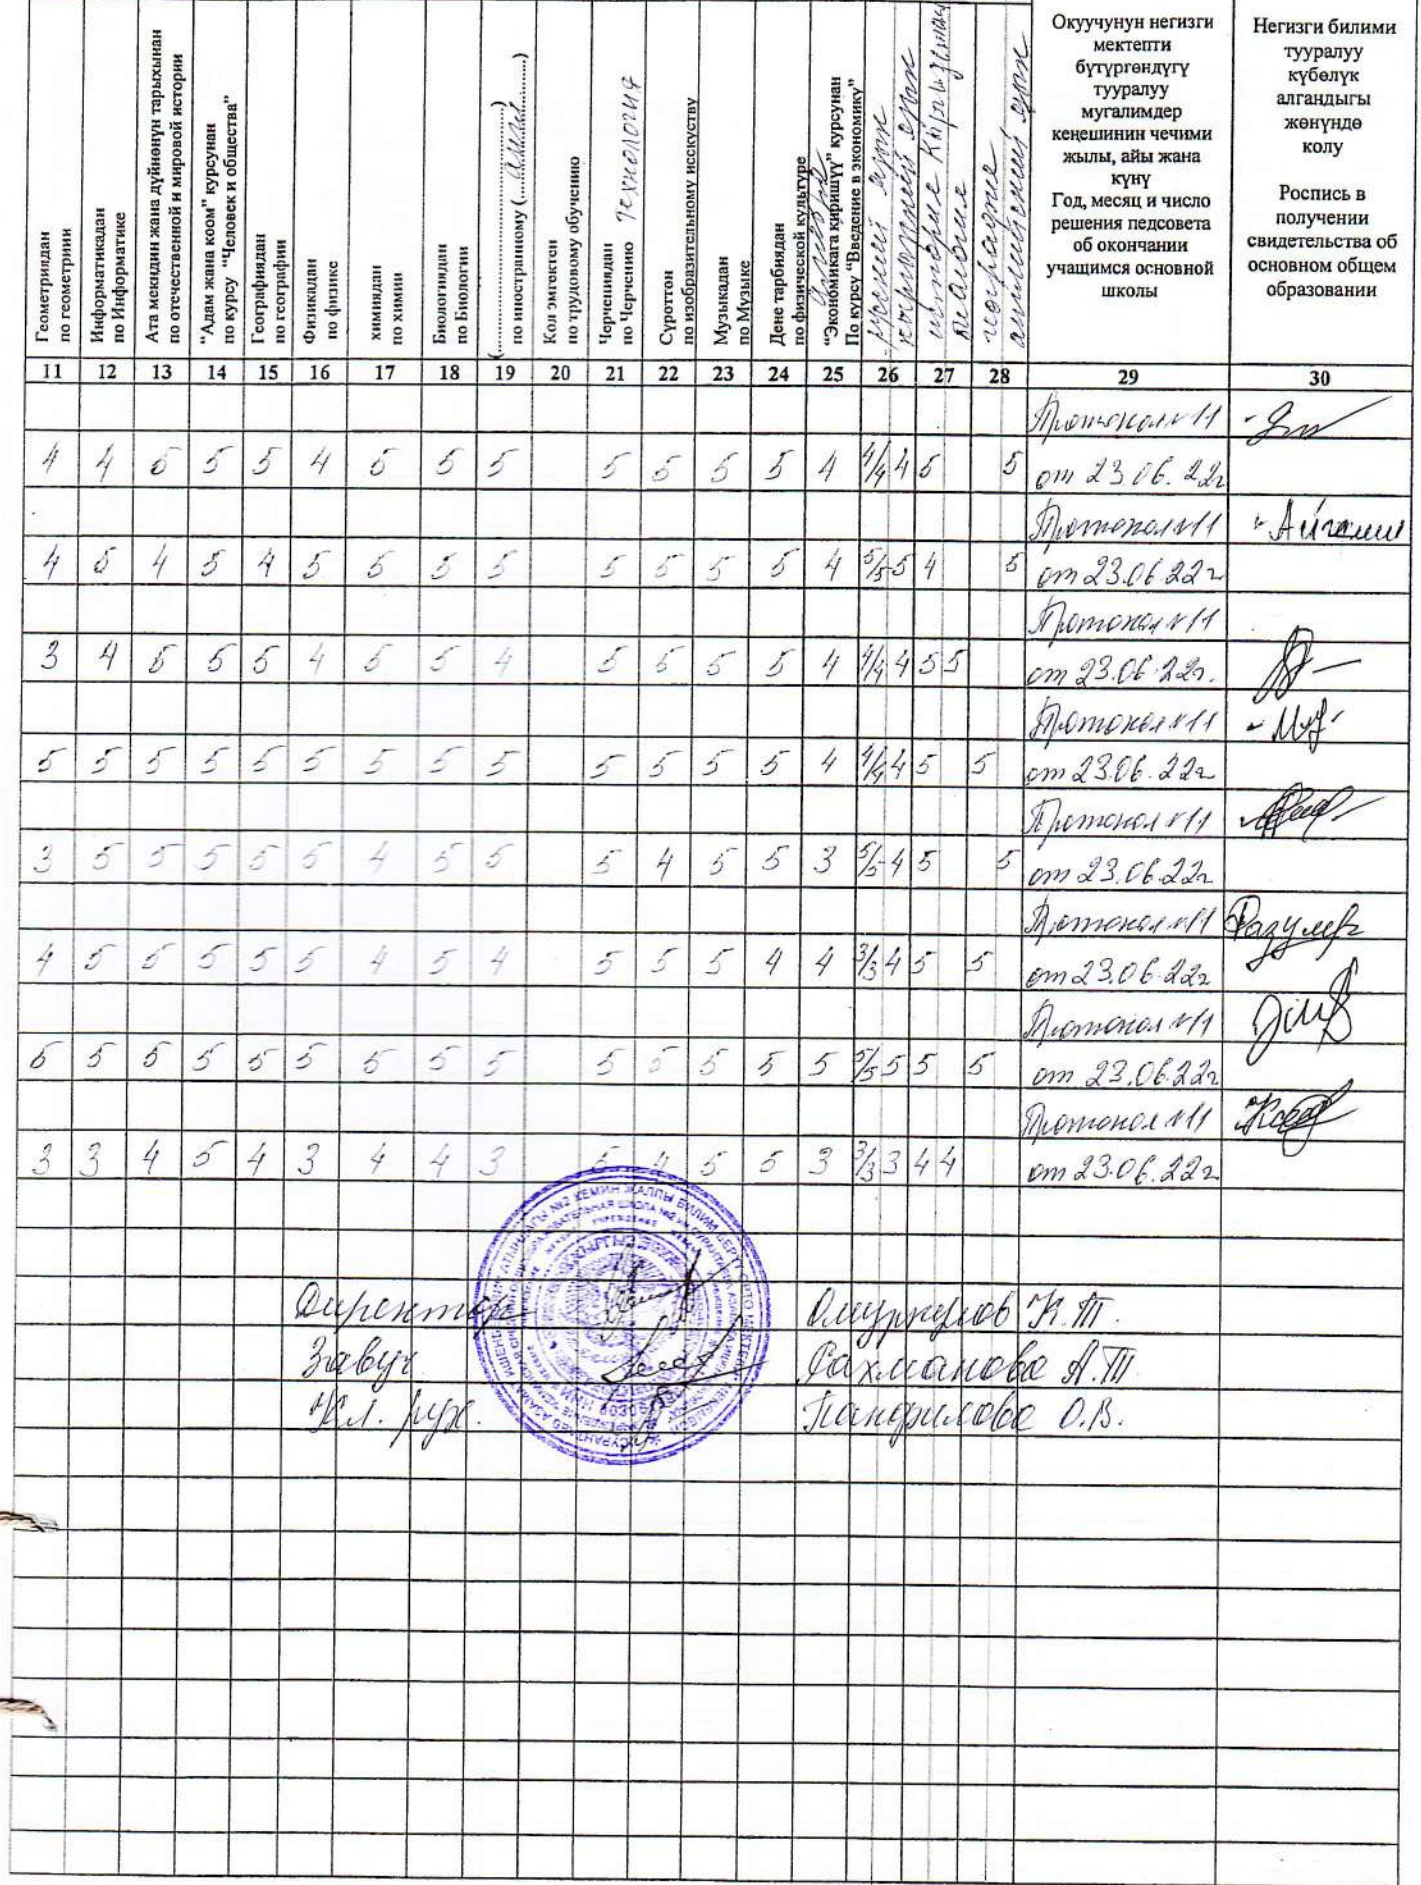 Геометриядан
по геометриии
Информатикадан
по Информатике
Ата мекндин жана дүйнөнүн тарыхынан
по отечественной и мировой истории
"Адам жана коом" курсунан
по курсу "Человек и общества"
Географиядан
по географии
Физикадан
по физике
химиядан
по химии
Биологиядан
по Биологии
(..............................)
по иностранному (....англ..............)
Кол эмгектен
по трудовому обучению
Черчениядан
по Черчению
Технология
Сүроттон
по изобразительному исскуству
Музыкадан
по Музыке
Дене тарбиядан
по физической культуре
"Экономикага киришүү" курсунан
По курсу "Введение в экономику"
Алгебра
Русский язык
кыргызский язык
история Кыргызстана
география
английский язык
Окуучунун негизги
мектепти
бүтүргөндүгү
тууралуу
мугалимдер
кеңешинин чечими
жылы, айы жана
күнү
Год, месяц и число
решения педсовета
об окончании
учащимся основной
школы
Негизги билими
тууралуу
күбөлүк
алгандыгы
жөнүндө
колу
Роспись в
получении
свидетельства об
основном общем
образовании
11 12 13 14 15 16 17 18 19 20 21 22 23 24 25 26 27 28 29 30
Протокол №11
4 4 5 5 5 4 5 5 5 5 5 5 5 4 4/4 4 5 5 от 23.06.22г
Протокол №11
4 5 4 5 4 5 5 5 5 5 5 5 5 4 5/5 5 4 5 от 23.06.22г
Протокол №11
3 4 5 5 5 4 5 5 4 5 5 5 5 4 4/4 4 5 5 от 23.06.22г.
Протокол №11
5 5 5 5 5 5 5 5 5 5 5 5 5 4 4/4 4 5 5 от 23.06.22г
Протокол №11
3 5 5 5 5 5 4 5 5 5 4 5 5 3 5/5 4 5 5 от 23.06.22г
Протокол №11
4 5 5 5 5 5 4 5 4 5 5 5 4 4 3/3 4 5 5 от 23.06.22г
Протокол №11
5 5 5 5 5 5 5 5 5 5 5 5 5 5 5/5 5 5 5 от 23.06.22г
Протокол №11
3 3 4 5 4 3 4 4 3 5 4 5 5 3 3/3 3 4 4 от 23.06.22г
Директор Омуркулов К.Т.
Завуч Рахманова А.Т.
Кл. рук. Панфилова О.В.